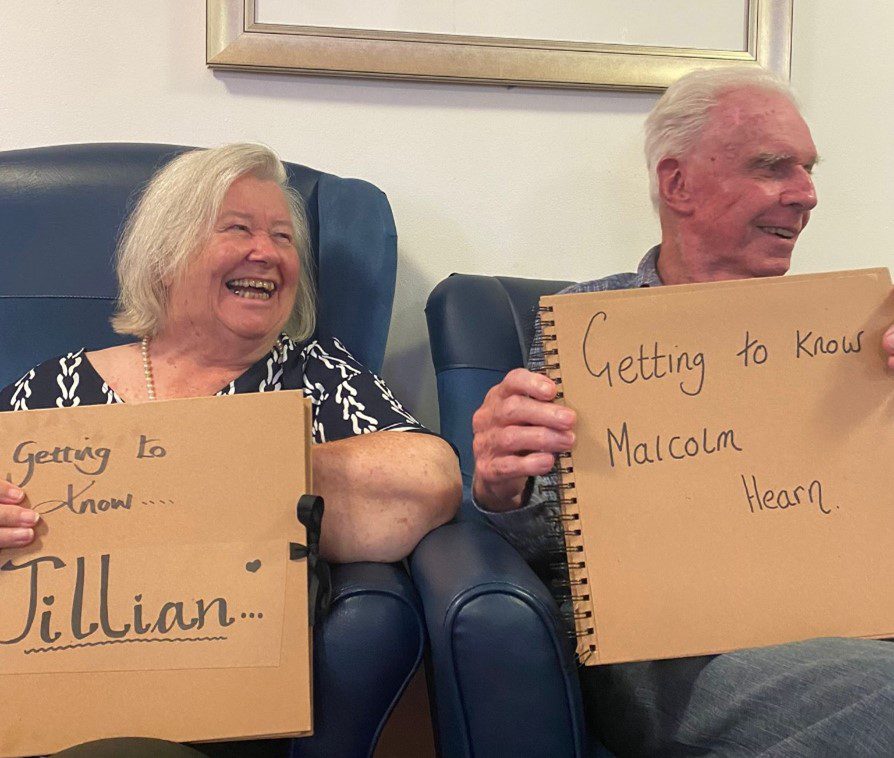 Getting to
Know....
Jillian...
Getting to Know
Malcolm
Hearn.